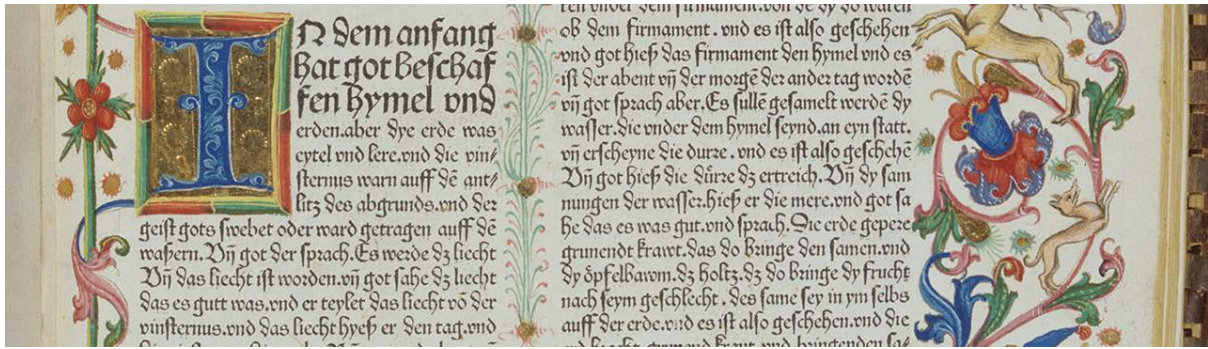 IN dem anfang
hat got beschaf
fen hymel vnd
erden.aber dye erde was
eytel vnd lere.vnd die vin⸗
sternus warn auff dē ant⸗
litz des abgrunds.vnd der
geist gots swebet oder ward getragen auff dē
wassern. Vñ got der sprach. Es werde dz liecht
Vñ das liecht ist worden.vñ got sahe dz liecht
das es gutt was.vnd er teylet das liecht vō der
vinsternus.vnd das liecht hyeß er den tag.vnd
ren vnder dem firmament.von dē dy do waren
ob dem firmament. vnd es ist also geschehen
vnd got hieß das firmament den hymel vnd es
ist der abent vñ der morgē der ander tag wordē
vñ got sprach aber. Es süllē gesamelt werdē dy
wasser.die vnder dem hymel seynd.an eyn statt.
vñ erscheyne die durre. vnd es ist also geschehē
Vñ got hieß die dürre dz ertreich. Vñ dy sam
nungen der wasser.hieß er die mere.vnd got sa
he das es was gut.vnd sprach. Die erde gepere
grunendt krawt.das do bringe den samen.vnd
dy öpfelbawm.dz holtz.dz do bringe dy frucht
nach seym geschlecht. des same sey in ym selbs
auff der erde.vnd es ist also geschehen.vnd die